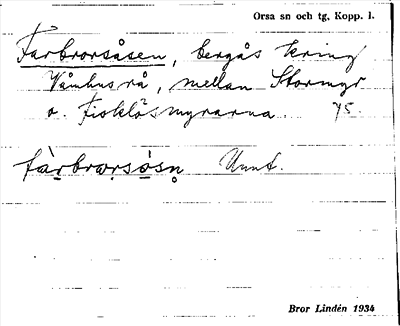 Orsa sn och tg, Kopp. l.
Farbrorsåsen, bergås kring
Våmhus rå, mellan Stormyr
o. Fisklösmyrarna. 75
fàrbrωrsò̱sn̥ Unnt.
Bror Lindén 1934